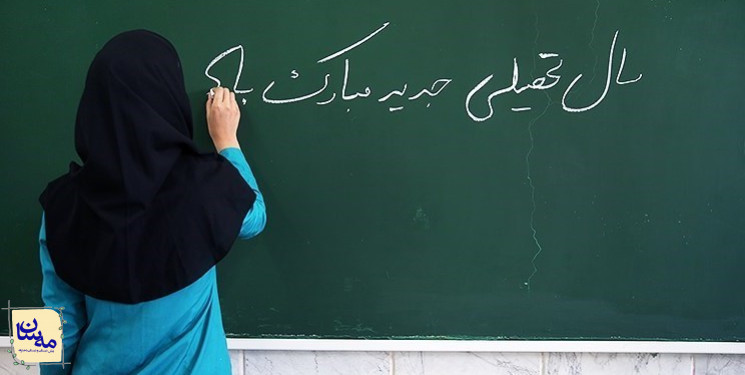 سال تحصیلی جدید مبارک با
مهسان